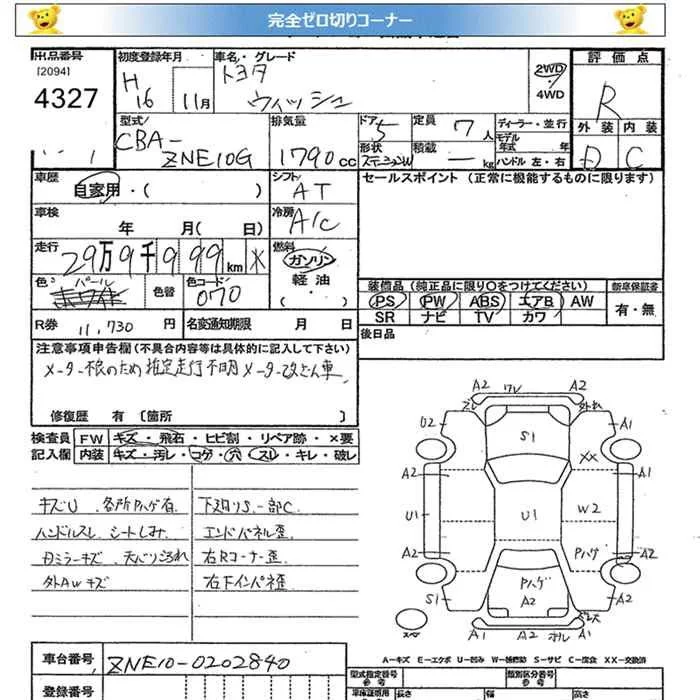 完全ゼロ切りコーナー
出品番号 初度登録年月 車名・グレード 評価点
[2094] H トヨタ 2WD
4327 16 11月 ウィッシュ 4WD R
型式 排気量 ドア 定員 ディーラー・並行 外装 内装
CBA- 5 7人 モデル年式 年 D C
ZNE10G 1790cc 形状 ステーションW 積載 ー kg ハンドル 左・右
車歴 シフト セールスポイント (正常に機能するものに限ります)
自家用・( ) AT
車検 冷房
年 月( 日) A/C
走行 燃料
29万9千999km * ガソリン
色 パール 色替 色コード 軽油 装備品 (純正品に限り○をつけてください) 新車保証書
070 ・( ) PS PW ABS エアB AW 有・無
R券 11,730円 名変通知期限 月 日 SR ナビ TV カワ
注意事項申告欄 (不具合内容等は具体的に記入して下さい) 後日品
メーター不良のため推定走行不明 メーター改ざん車
修復歴 有 [箇所 ]
検査員 FW キズ・飛石・ヒビ割・リペア跡・×要
記入欄 内装 キズ・汚レ・コゲ・穴・スレ・キレ・破レ
キズU 各所Pハゲ有 下廻りS、一部C
ハンドルスレ シートしみ エンドパネル歪
右Rコーナー歪
外AWキズ 右Fインパネ歪
A2 ワレ A2
U2 外れ A1
S1
XX
A2 A1
U1 U1 W2
A2 Pハゲ A2
Pハゲ
S1 A2 A1
スペア A1 A2 A1
車台番号 ZNE10-0202840
A-キズ E-エクボ U-凹み W-補修跡 S-サビ C-腐食 XX-交換済
登録番号 型式指定番号 参考 類別区分番号 参考
車検証情報 長さ 幅 高さ